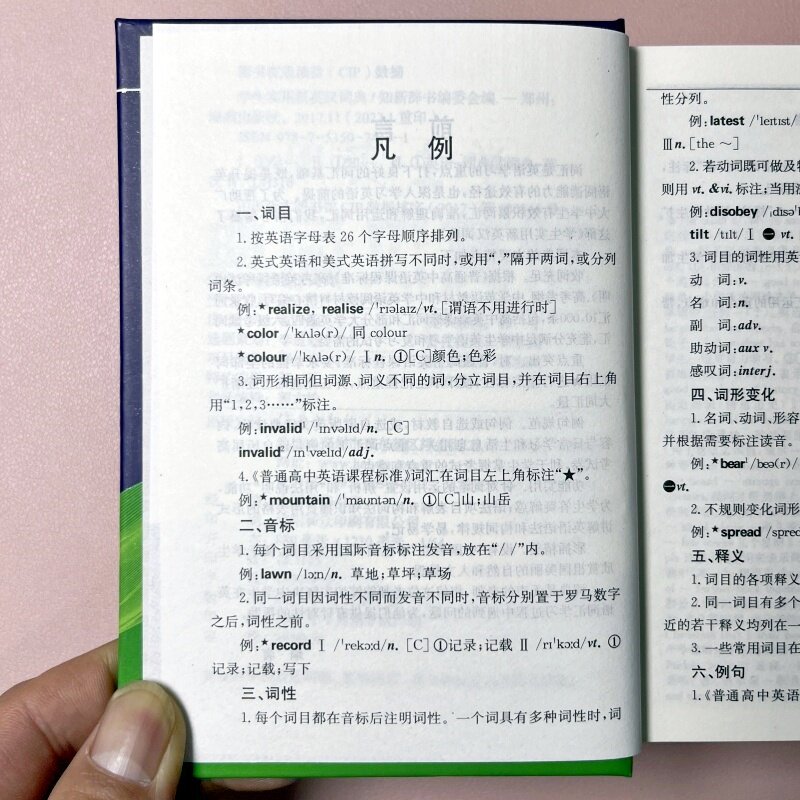 凡 例
一、词目
1.按英语字母表 26 个字母顺序排列。
2.英式英语和美式英语拼写不同时,或用“,”隔开两词,或分列
词条。
例:★realize, realise /ˈrɪəlaɪz/vt.[谓语不用进行时]
★color /ˈkʌlə(r)/ 同 colour
★colour /ˈkʌlə(r)/ Ⅰn. ①[C]颜色;色彩
3.词形相同但词源、词义不同的词,分立词目,并在词目右上角
用“1,2,3……”标注。
例:invalid¹ /ˈɪnvəlɪd/n. [C]
invalid² /ɪnˈvælɪd/adj.
4.《普通高中英语课程标准》词汇在词目左上角标注“★”。
例:★mountain /ˈmaʊntən/n. ①[C]山;山岳
二、音标
1.每个词目采用国际音标标注发音,放在“/ /”内。
例:lawn /lɔːn/n. 草地;草坪;草场
2.同一词目因词性不同而发音不同时,音标分别置于罗马数字
之后,词性之前。
例:★record Ⅰ /ˈrekɔːd/n. [C]①记录;记载 Ⅱ /rɪˈkɔːd/vt. ①
记录;记载;写下
三、词性
1.每个词目都在音标后注明词性。一个词具有多种词性时,词
性分列。
例:latest /ˈleɪtɪst/
Ⅲn.[the ～]
2.若动词既可做及
则用 vt. &vi. 标注;当用
例:disobey /ˌdɪsə
tilt /tɪlt/ Ⅰ ➊ vt.
3.词目的词性用英
动 词:v.
名 词:n.
副 词:adv.
助动词:aux v.
感叹词:interj.
四、词形变化
1.名词、动词、形容
并根据需要标注读音。
例:★bear¹ /beə(r)/
➊vt.
2.不规则变化词形
例:★spread /spred
五、释义
1.词目的各项释义
2.同一词目有多个
近的若干释义均列在一
3.一些常用词目在
六、例句
1.《普通高中英语